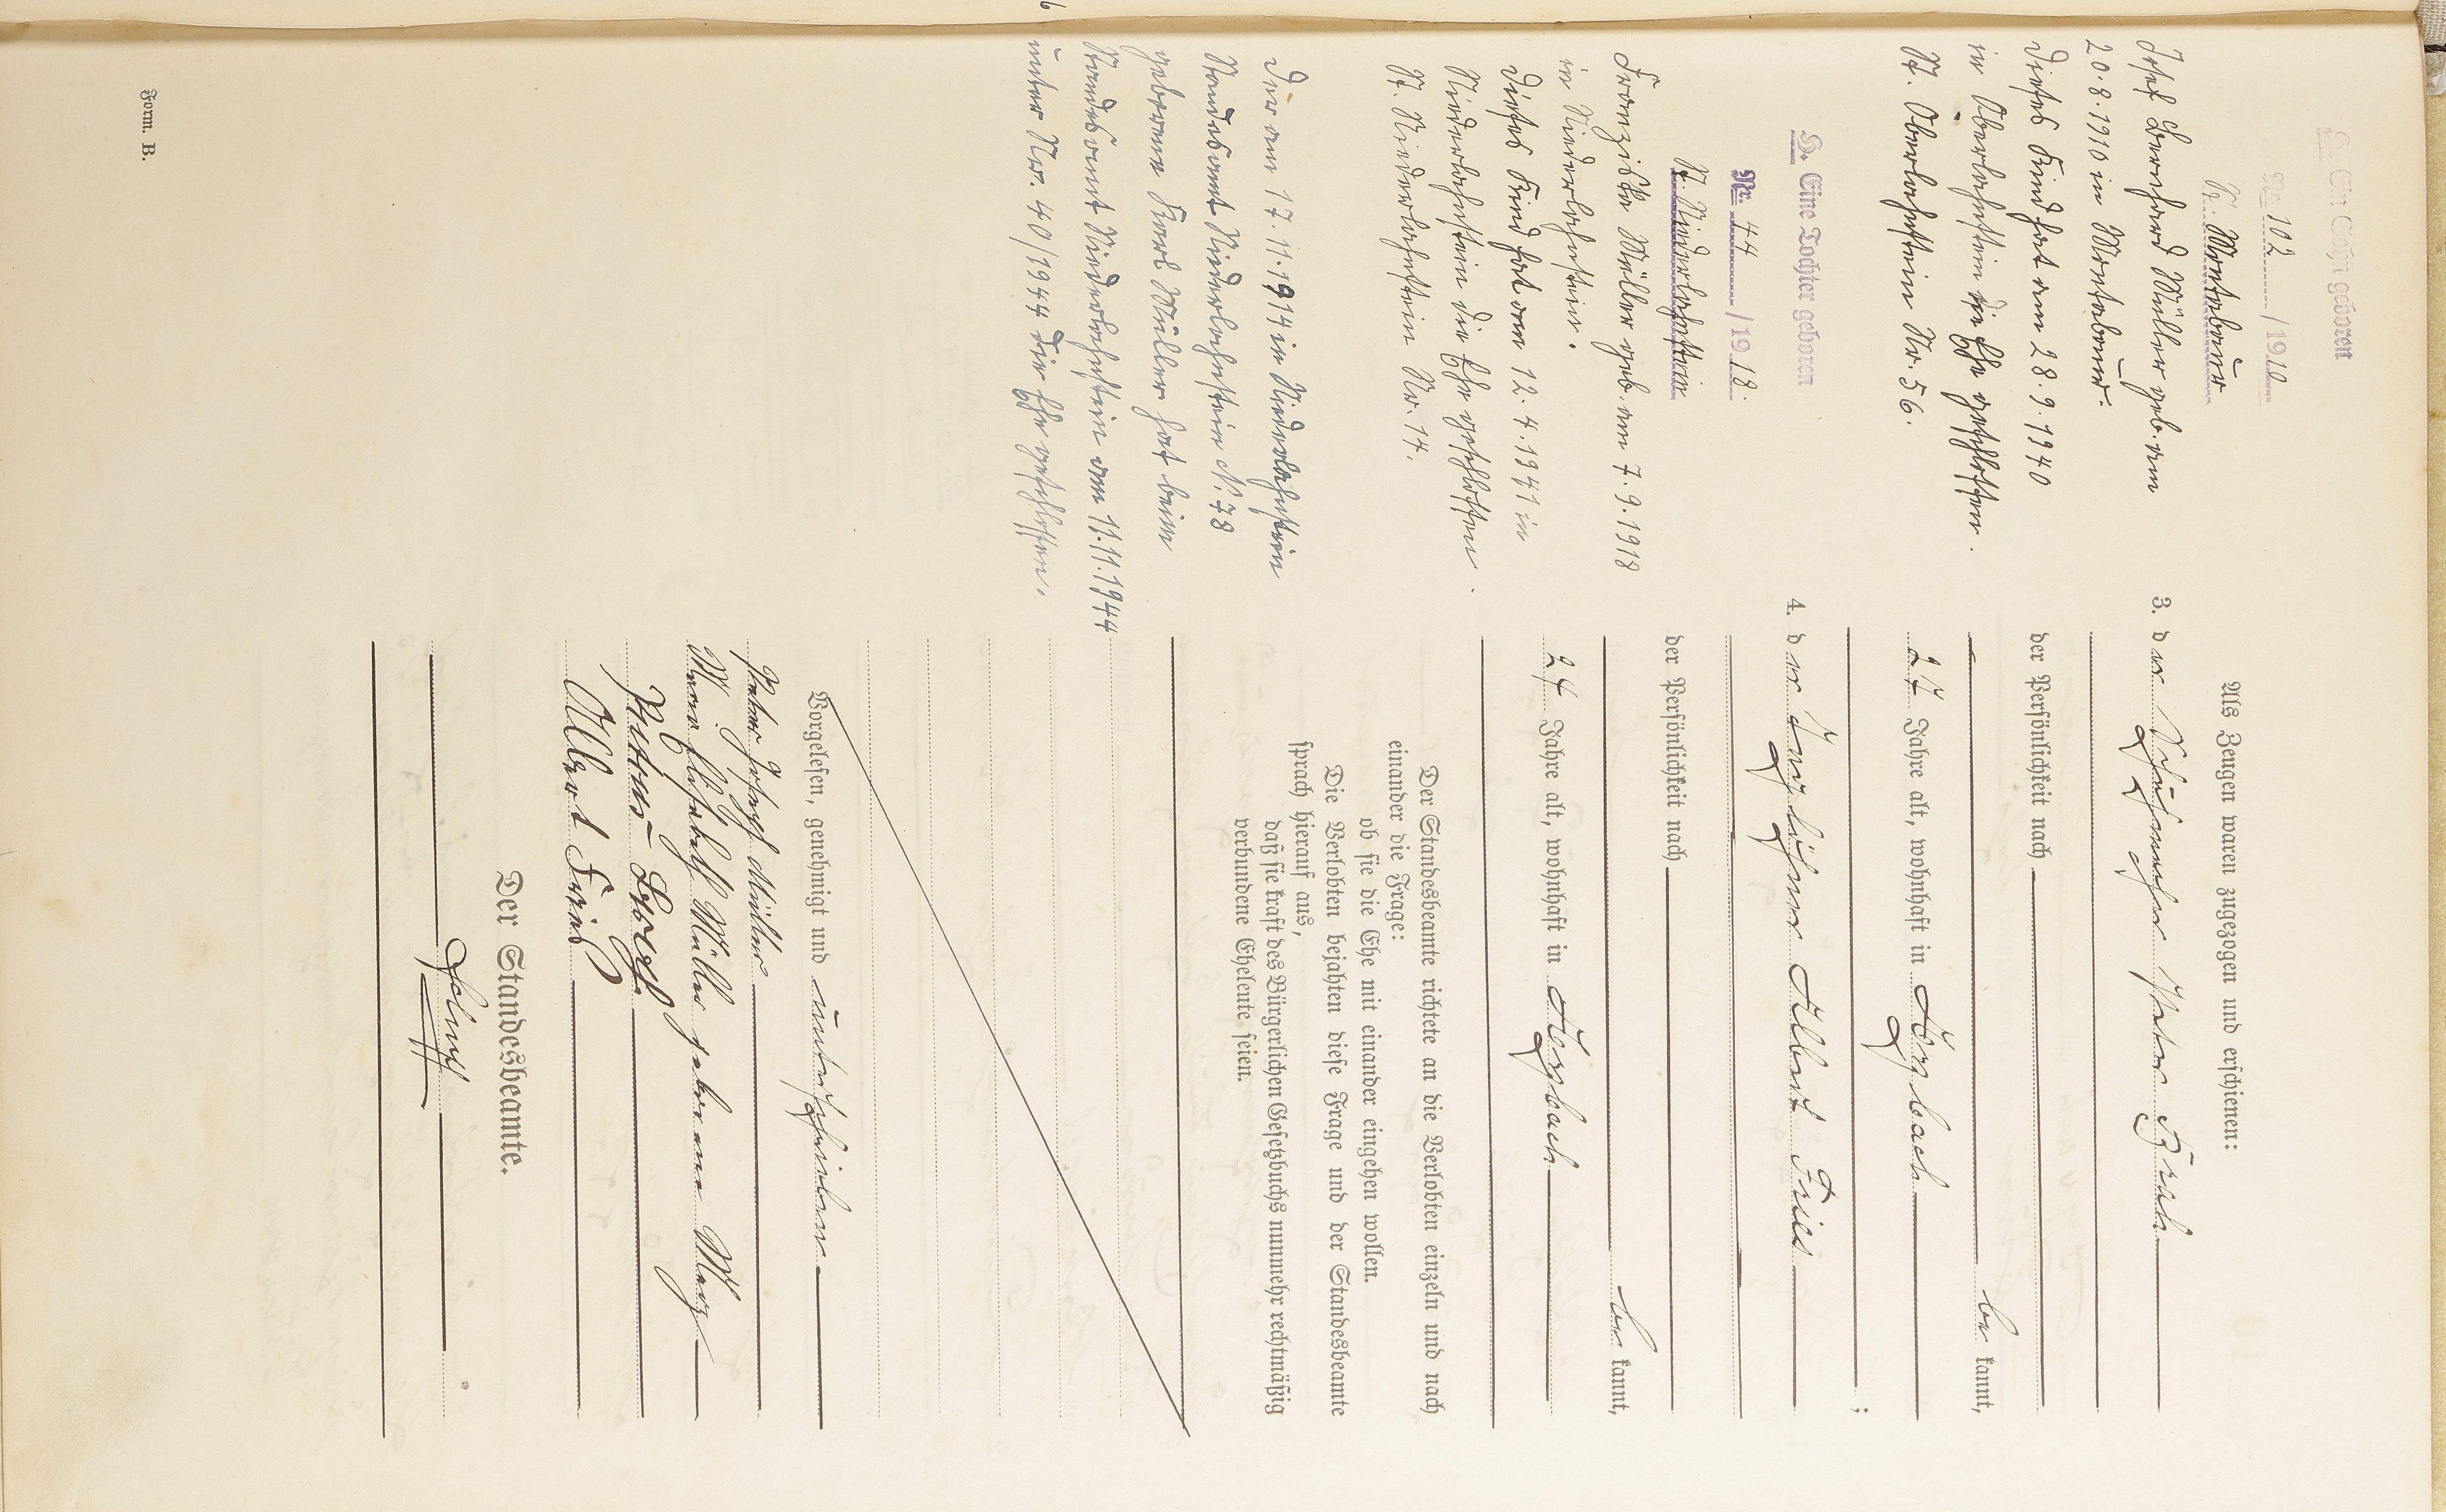 Ein Sohn geboren
Nr. 102 / 1910
St. Montabaur
Josef Bernhard Müller geb. am
20.8.1910 in Montabaur.
Dieses Kind hat am 28.9.1940
in Oberlahnstein die Ehe geschlossen.
St. Oberlahnstein Nr. 56.
Eine Tochter geboren
Nr. 44 / 1918.
St. Niederlahnstein
Franziska Müller geb. am 7.9.1918
in Niederlahnstein.
Dieses Kind hat am 12.4.1941 in
Niederlahnstein die Ehe geschlossen.
St. Niederlahnstein Nr. 14.
Der am 17.11.1914 in Niederlahnstein
Standesamt Niederlahnstein N. 78
geborene Karl Müller hat beim
Standesamt Niederlahnstein am 11.11.1944
unter Nr. 40/1944 die Ehe geschlossen.
Als Zeugen waren zugezogen und erschienen:
3. der Schuhmacher Peter
der Persönlichkeit nach
be kannt,
27 Jahre alt, wohnhaft in Arzbach
;
4. der Albert Fries
der Persönlichkeit nach
be kannt,
24 Jahre alt, wohnhaft in Arzbach
Der Standesbeamte richtete an die Verlobten einzeln und nach
einander die Frage:
ob sie die Ehe mit einander eingehen wollen.
Die Verlobten bejahten diese Frage und der Standesbeamte
sprach hierauf aus,
daß sie kraft des Bürgerlichen Gesetzbuchs nunmehr rechtmäßig
verbundene Eheleute seien.
Vorgelesen, genehmigt und unterschrieben
Peter Joseph Müller
Maria Elisabeth Müller geborene
Albert Fries
Der Standesbeamte.
Form. B.